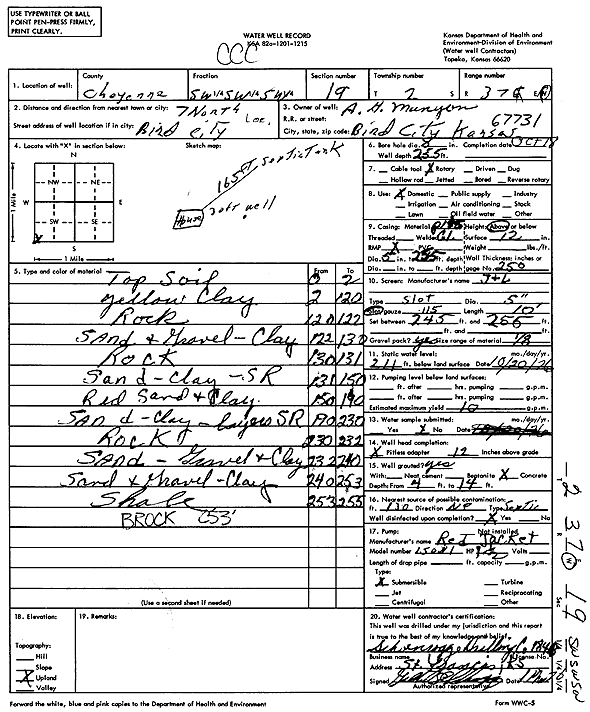 USE TYPEWRITER OR BALL
POINT PEN-PRESS FIRMLY,
PRINT CLEARLY.
WATER WELL RECORD
KSA 82a-1201-1215
CCC
Kansas Department of Health and
Environment-Division of Environment
(Water well Contractors)
Topeka, Kansas 66620
1. Location of well:
County
Cheyenne
Fraction
SW¼ SW¼ SW¼
Section number
19
Township number
T 2 S
Range number
R 37 E/W
2. Distance and direction from nearest town or city: 7 North
Street address of well location if in city: Bird City
3. Owner of well: A. H. Munyon
R.R. or street:
City, state, zip code: Bird City Kansas 67731
4. Locate with "X" in section below:
N
NW NE
W E
SW SE
X
S
1 Mile
1 Mile
Sketch map:
165 ft septic tank
House
well
6. Bore hole dia. 8 in. Completion date OCT 18
Well depth 255 ft.
7. Cable tool X Rotary Driven Dug
Hollow rod Jetted Bored Reverse rotary
8. Use: X Domestic Public supply Industry
Irrigation Air conditioning Stock
Lawn Oil field water Other
9. Casing: Material Height: Above or below
Threaded Welded Surface 12 in.
RMP X PVC Weight lbs./ft.
Dia. 5 in. to 255 ft. depth Wall Thickness: inches or
Dia. in. to ft. depth gage No. 250
5. Type and color of material From To
Top Soil 0 2
Yellow Clay 2 120
Rock 120 122
Sand & Gravel - Clay 122 130
Rock 130 131
Sand - Clay - SR 131 150
Red Sand & Clay 150 190
Sand - Clay - layers SR 190 230
Rock 230 232
Sand - Gravel & Clay 232 240
Sand & Gravel - Clay 240 253
Shale 253 255
BROCK 253'
(Use a second sheet if needed)
10. Screen: Manufacturer's name J+L
Type Slot Dia. 5"
Slot/gauze .115 Length 10'
Set between 245 ft. and 255 ft.
ft. and ft.
Gravel pack? yes Size range of material 1/8
11. Static water level: mo./day/yr.
211 ft. below land surface Date 10/20/76
12. Pumping level below land surfaces:
ft. after hrs. pumping g.p.m.
ft. after hrs. pumping g.p.m.
Estimated maximum yield 10 g.p.m.
13. Water sample submitted: mo./day/yr.
Yes X No Date
14. Well head completion:
X Pitless adapter 12 Inches above grade
15. Well grouted? yes
With: Neat cement Bentonite X Concrete
Depth: From 4 ft. to 14 ft.
16. Nearest source of possible contamination:
ft. 130 Direction NE Type Septic
Well disinfected upon completion? X Yes No
17. Pump: Not installed
Manufacturer's name Red Jacket
Model number HP Volts
Length of drop pipe ft. capacity g.p.m.
Type:
X Submersible Turbine
Jet Reciprocating
Centrifugal Other
18. Elevation:
Topography:
Hill
Slope
X Upland
Valley
19. Remarks:
20. Water well contractor's certification:
This well was drilled under my jurisdiction and this report
is true to the best of my knowledge and belief.
Business name License No.
Address St. Francis, KS
Signed
Authorized representative
Forward the white, blue and pink copies to the Department of Health and Environment
Form WWC-5
2 37 W 19 SW SW SW
Sec